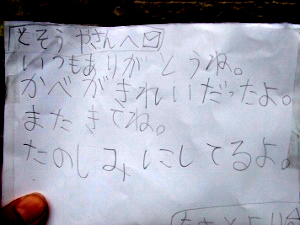 とそうやさんへ
いつもありがとうね。
かべがきれいだったよ。
またきてね。
たのしみにしてるよ。